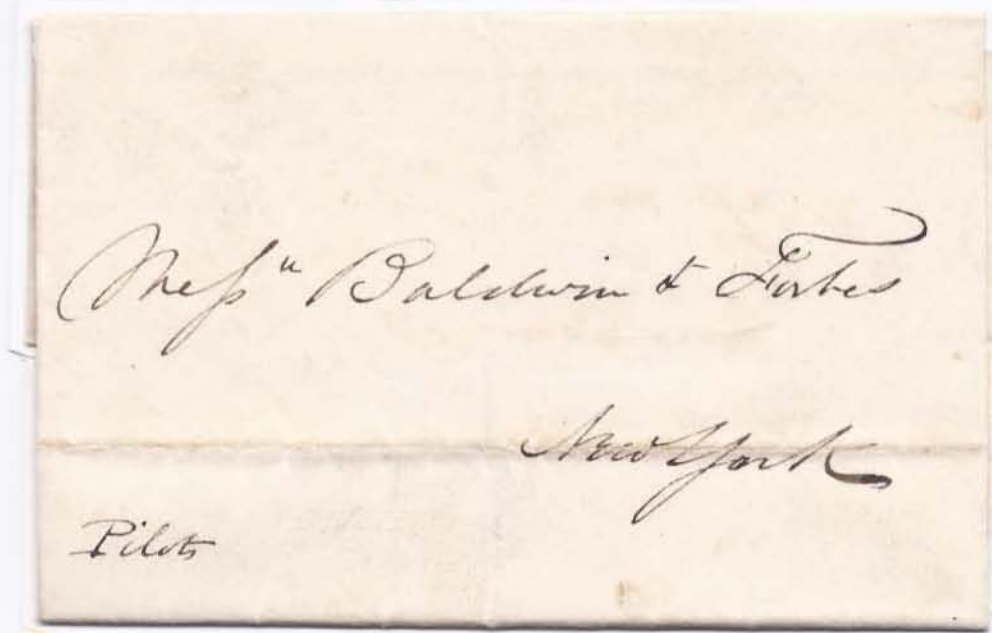 Messrs Baldwin & Forbes
New York
Pilots